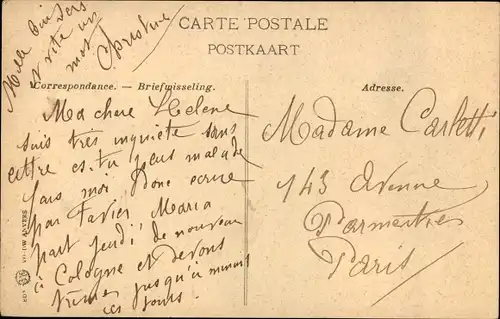 Mille baisers
et vite un
mot
Christine
CARTE POSTALE
POSTKAART
Correspondance. — Briefwisseling.
Adresse.
Ma chere Helene
suis très inquiete sans
lettre es-tu plus malade
fais moi donc ecrire
par Xavier Maria
part jeudi de nouveau
à Cologne et devons
jusqu'à minuit
ces jours.
Madame Carletti
143 Avenue
Parmentier
Paris
ANVERS